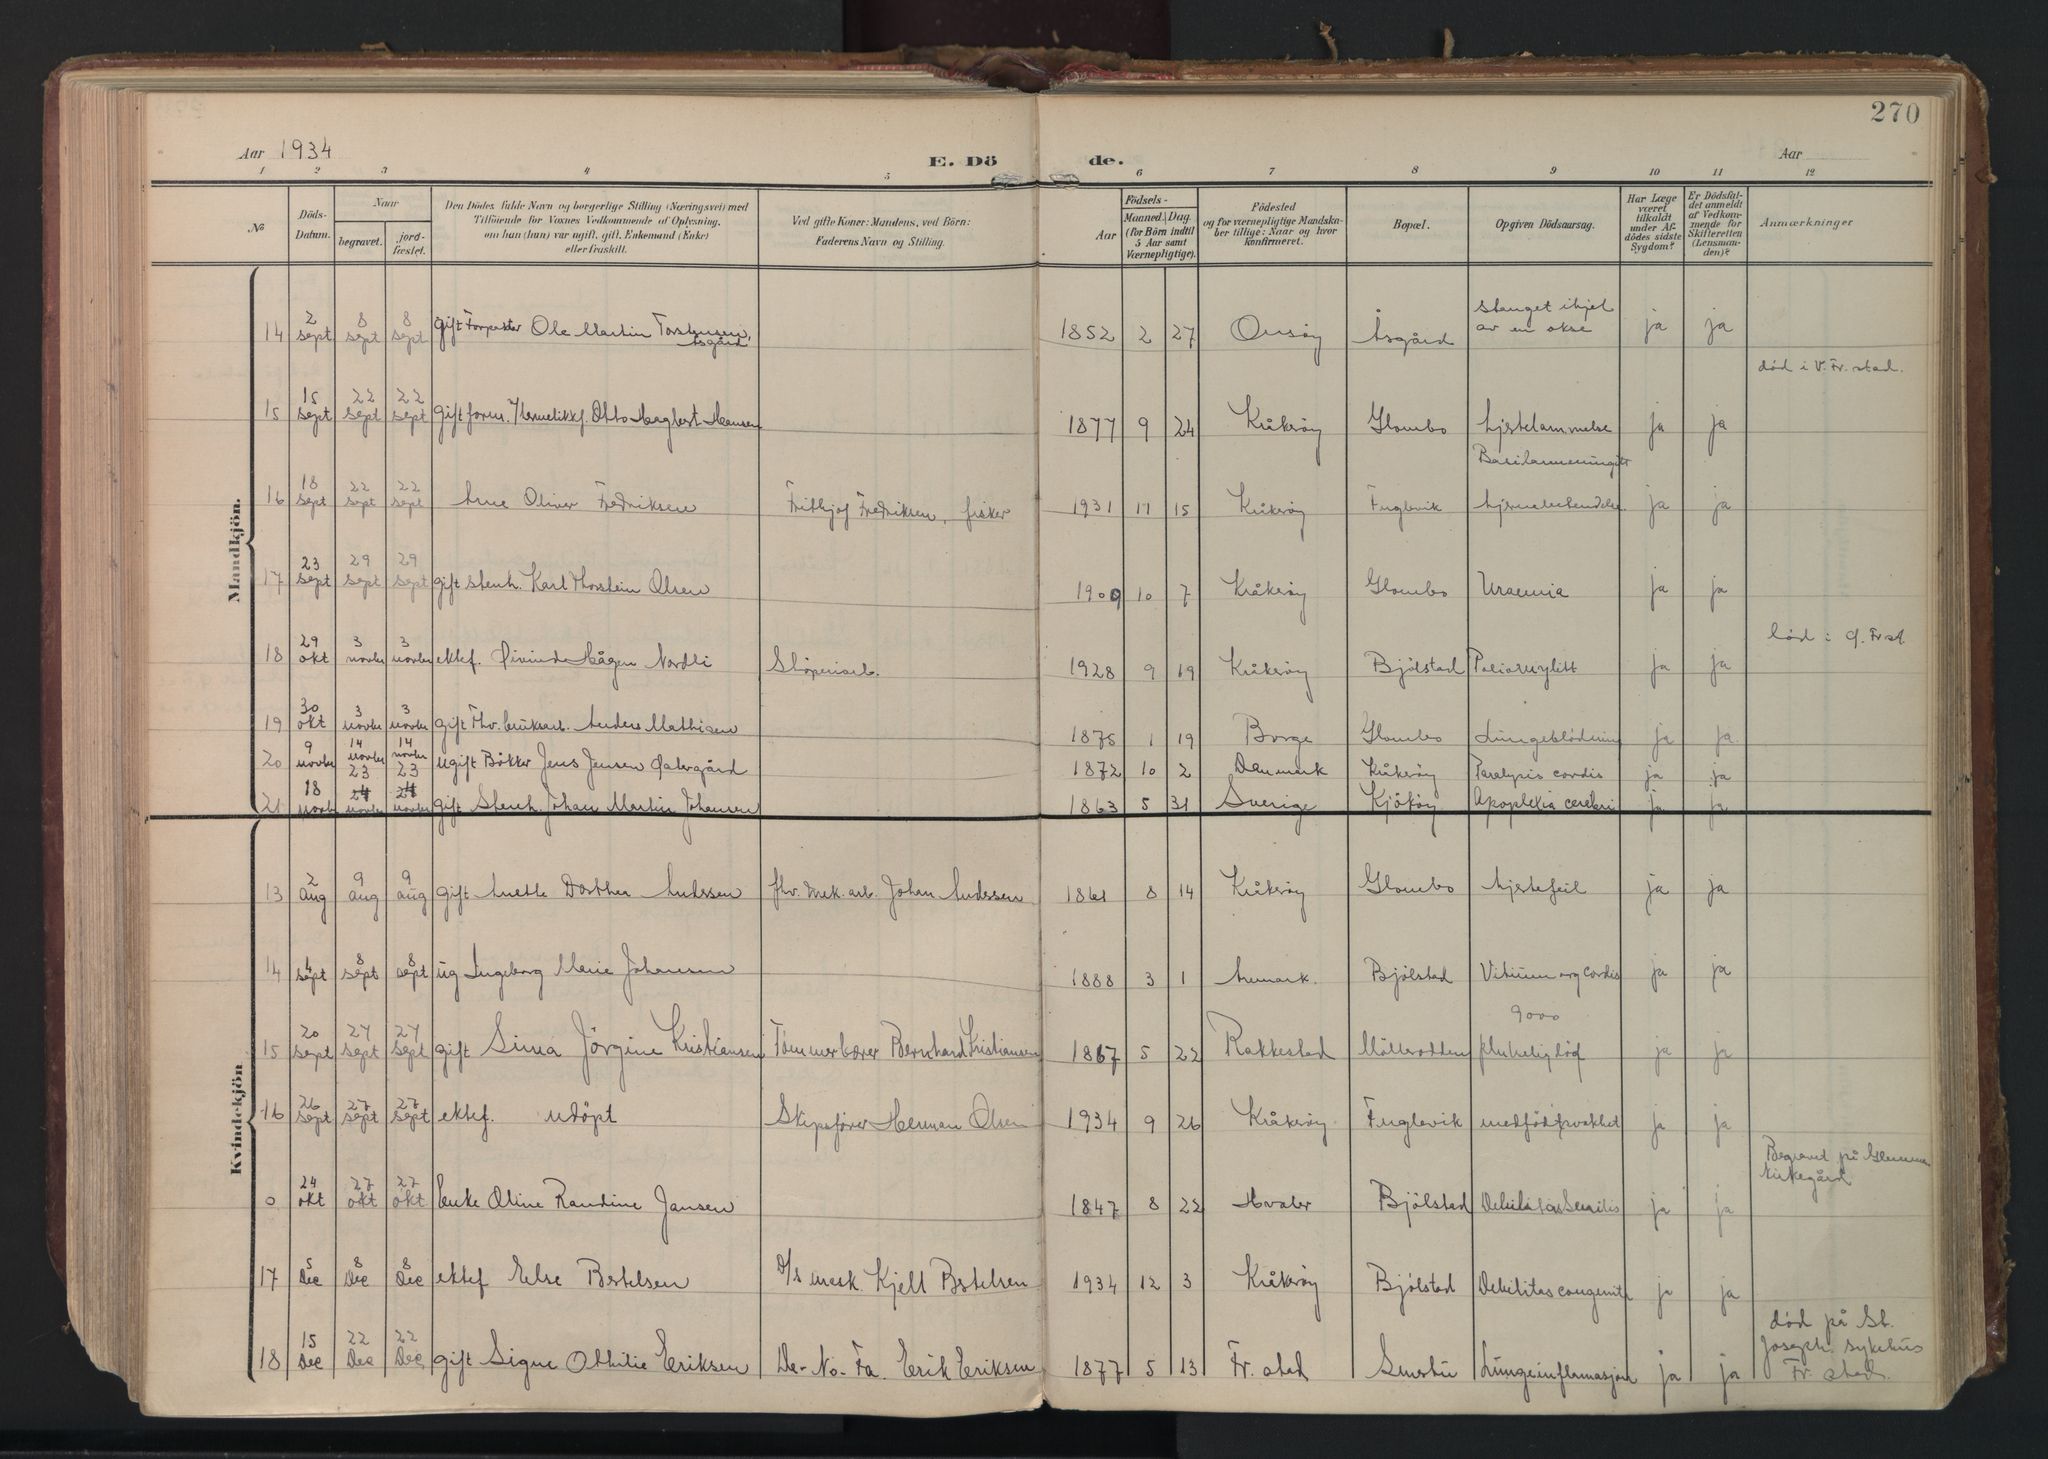 270
Aar 1934
E. Dö de.
Aar
1 2 3 4 5 6 7 8 9 10 11 12
No
Döds-Datum.
Naar
begravet.
jord-fæstet.
Den Dödes fulde Navn og borgerlige Stilling (Næringsvei) med
Tilföiende for Voxnes Vedkommende af Oplysning,
om han (hun) var ugift, gift, Enkemand (Enke)
eller fraskilt.
Ved gifte Koner: Mandens, ved Börn:
Faderens Navn og Stilling.
Födsels-
Aar
Maaned. Dag.
(for Börn indtil
5 Aar samt
Værnepligtige).
Födested
og for værnepligtige Mandska-
ber tillige: Naar og hvor
konfirmeret.
Bopæl.
Opgiven Dödsaarsag.
Har Læge
været
tilkaldt
under Af-
dödes sidste
Sygdom?
Er Dödsfal-
det anmeldt
af Vedkom-
mende for
Skifteretten
(Lensman-
den)?
Anmærkninger
Mandkjön.
14 2 sept 8 sept 8 sept gift Forpakter Ole Martin Torstensen, Åsgård 1852 2 27 Onsöy Åsgård stanget ihjel av en okse ja ja
død i V. Fr. stad.
15 15 sept 22 sept 22 sept gift form. Hermetikkf. Otto Hagbert Hansen 1877 9 24 Kråkröy Glombo hjertelammelse ja ja
16 18 sept 22 sept 22 sept Arne Oliver Fredriksen Frithjof Fredriksen, fisker 1931 11 15 Kråkröy Fuglevik hjernebetendelse ja ja
17 23 sept 29 sept 29 sept gift stenh. Karl Thorstein Olsen 1900 10 7 Kråkröy Glombo Uraemia ja ja
18 29 okt 3 novbr 3 novbr ektef. Øivind Hågen Nordli Stöperiarb. 1928 9 19 Kråkröy Bjölstad Poliomylitt ja ja
19 30 okt 3 novbr 3 novbr gift Fhv. bruksarb. Anders Mathisen 1875 1 19 Borge Glombo Lungeblödning ja ja
20 9 novbr 14 novbr 14 novbr ugift Bökker Jens Jensen 1872 10 2 Danmark Kråkröy Paralysis cordis ja ja
21 18 novbr 23 novbr 23 novbr gift Stenh. Johan Martin Johansen 1863 5 31 Sverige Kjököy Apoplexia cerebri ja ja
Kvindekjön
13 2 aug 9 aug 9 aug gift Anette Dorthea Anderssen fhv. mek. arb. Johan Anderssen 1861 8 14 Kråkröy Glombo hjertefeil ja ja
14 4 sept 8 sept 8 sept ug Ingeborg Marie Johansen 1888 3 1 Aremark. Bjölstad Vitium org cordis ja ja
15 20 sept 27 sept 27 sept gift Sina Jörgine Kristiansen Tömmerbærer Bernhard Kristiansen 1867 5 22 Rakkestad Möllerodden 9000 plutselig död ja ja
16 26 sept 27 sept 27 sept ektef. udöpt Skipsförer Herman Olsen 1934 9 26 Kråkröy Fuglevik medfödt svakhet ja ja
0 24 okt 27 okt 27 okt Enke Oline Randine Jansen 1847 8 22 Hvaler Bjölstad Debilitas Senilis ja ja Begravet på Glemmen Kirkegård
17 5 Dec 8 Dec 8 Dec ektef Else Bertelsen mek. Kjell Bertelsen 1934 12 3 Kråkröy Bjölstad Debilitas congenita ja ja
18 15 Dec 22 Dec 22 Dec gift Signe Othilie Eriksen De-No-Fa. Erik Eriksen 1877 5 13 Fr. stad Smertu Lungeinflamasjon ja ja død på St. Joseph. sykehus Fr. stad.